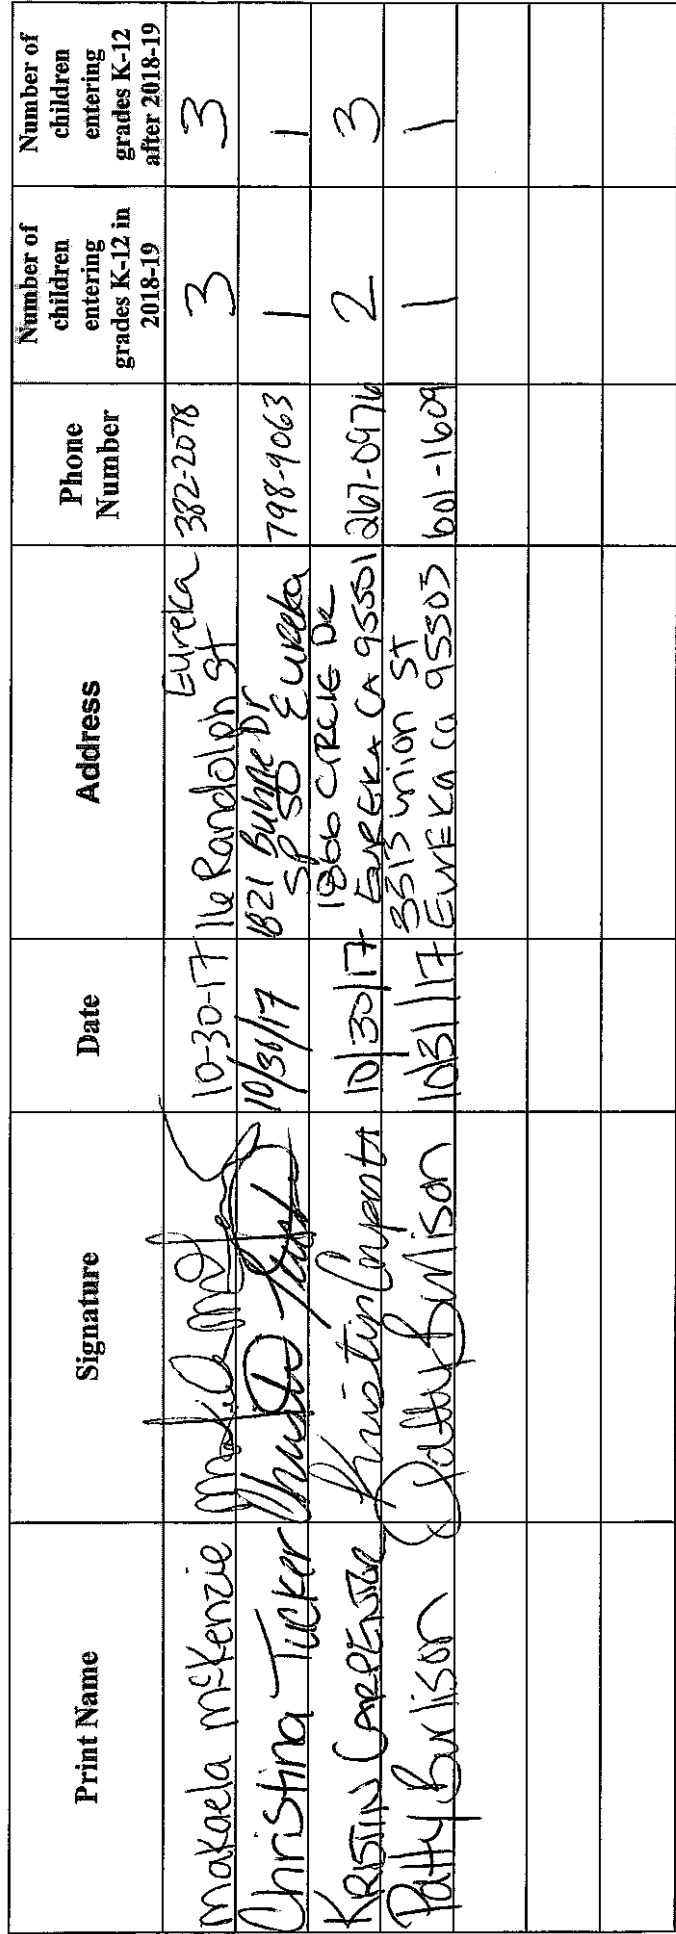 Print Name
Signature
Date
Address
Phone Number
Number of children entering grades K-12 in 2018-19
Number of children entering grades K-12 after 2018-19
makaela mcKenzie
10-30-17
116 Randolph St Eureka
382-2078
3
3
Christina Tucker
10/30/17
1821 Buhne Dr
SP 50 Eureka
798-9063
1
1
KRISTIN CARPENTER
Kristin Carpenter
10/30/17
1866 CIRCLE DR
EUREKA CA 95501
267-0976
2
3
Patty Burlison
Patty Burlison
10/31/17
3313 Union ST
EurEKa Ca 95503
601-1609
1
1